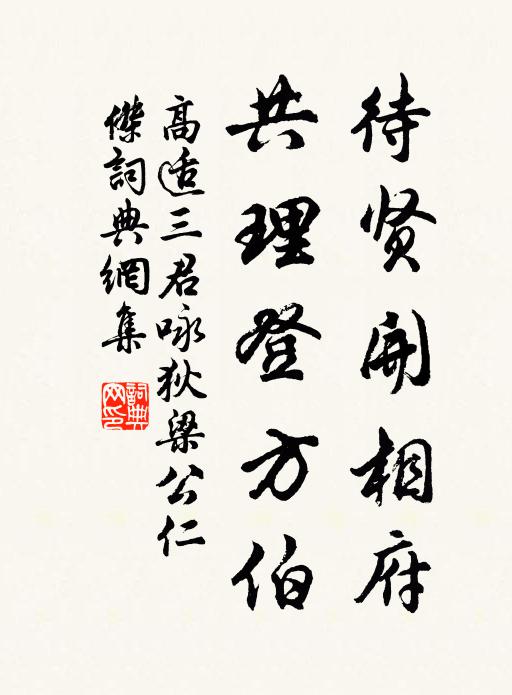 待贤開相府
共理登方伯
高适三君咏狄梁公仁
傑詞典網集
詞典
网印